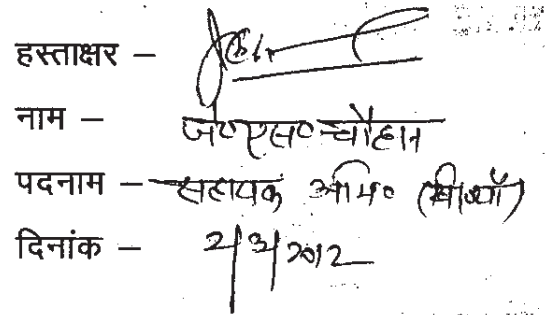 हस्ताक्षर –
नाम – जे०एस० चौहान
पदनाम – सहायक अभि० (सी०जाँ)
दिनांक – 2/3/2012